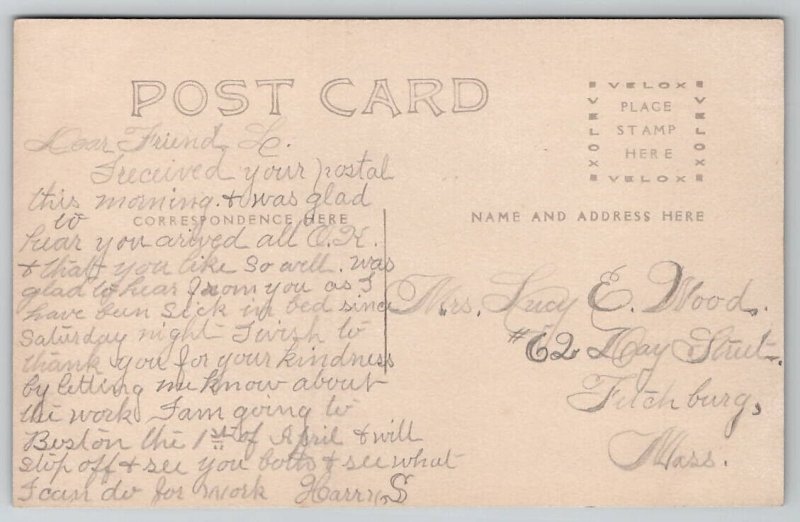 POST CARD
VELOX
VELOX
PLACE
STAMP
HERE
VELOX
VELOX
Dear Friend L.
I received your postal
this morning & was glad
to
CORRESPONDENCE HERE
hear you arived all O.K.
& that you like so well. was
glad to hear from you as I
have been sick in bed since
Saturday night I wish to
thank you for your kindness
by letting me know about
the work I am going to
Boston the 1st of April & will
stop off & see you both & see what
I can do for work Harry S
NAME AND ADDRESS HERE
Mrs. Lucy E. Wood.
#62 Day Street.
Fitchburg,
Mass.